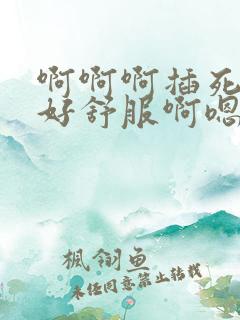 啊啊啊插死
好舒服啊嗯
枫翎鱼
未经同意禁止转载